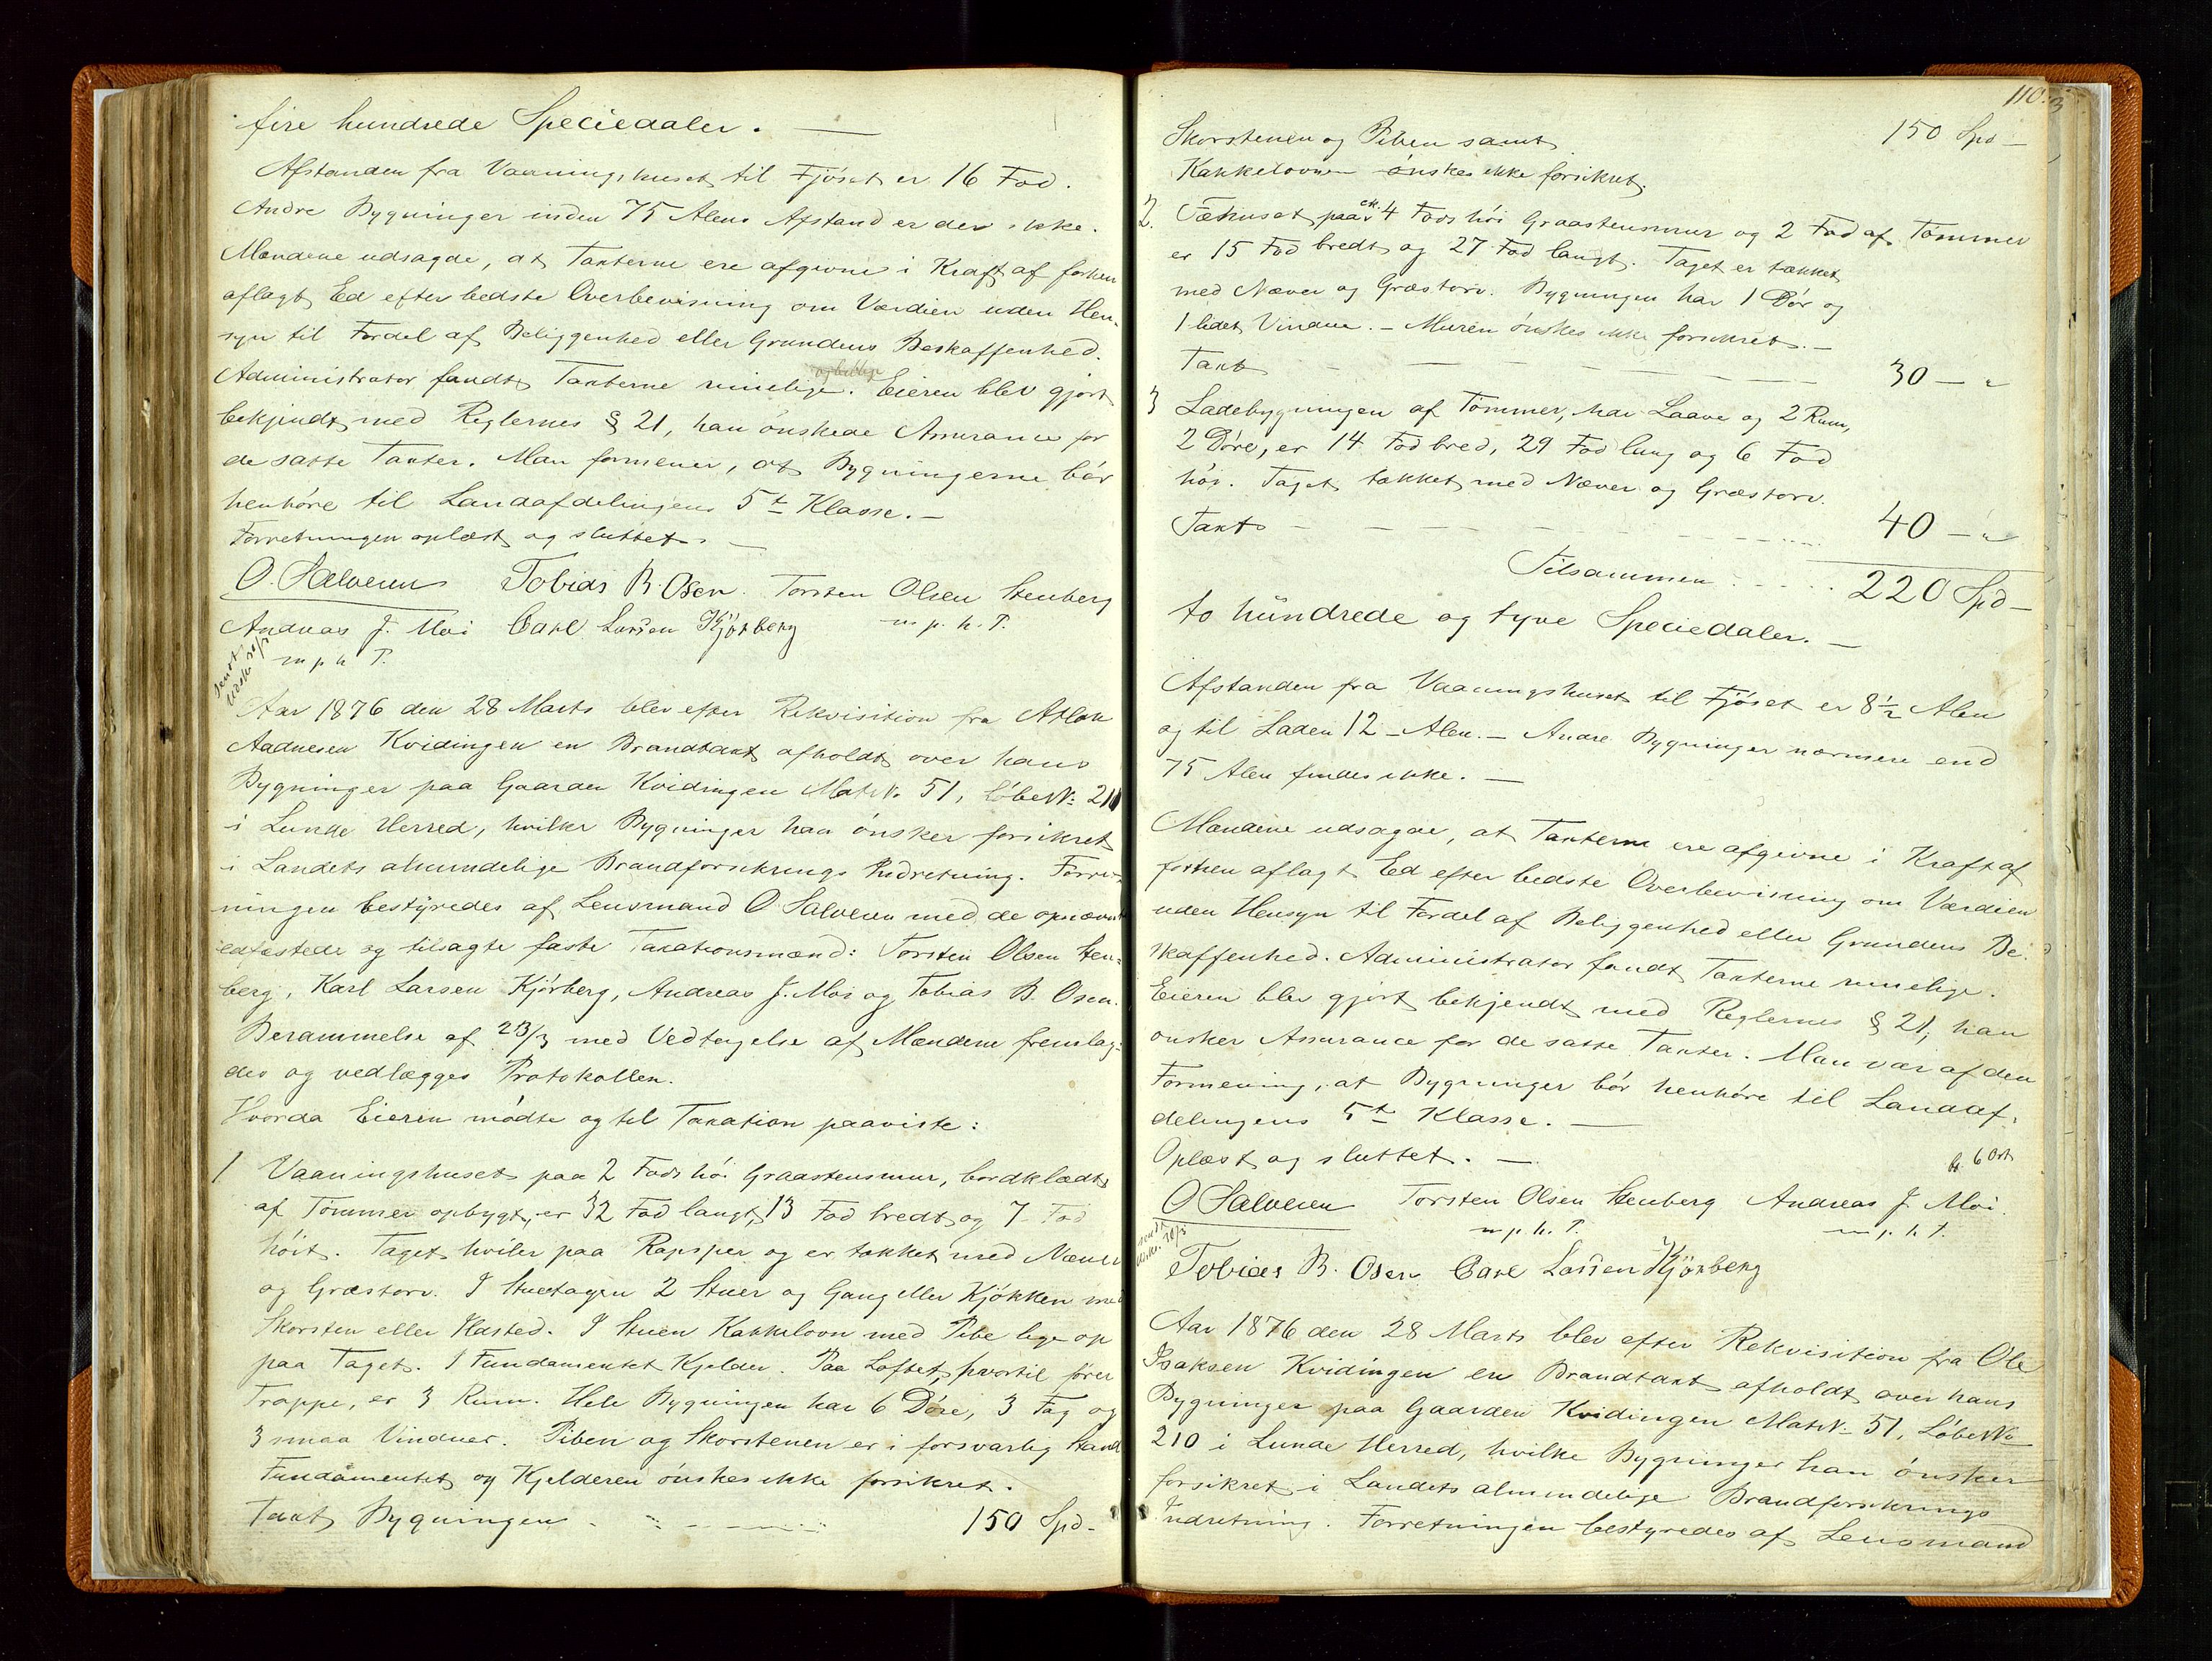 fire hundrede Speciedaler. —
Afstanden fra Vaaningshuset til Fjöset er 16 Fod.
Andre Bygninger inden 75 Alens Afstand er der ikke.
Mændene udsagde, at Taxterne ere afgivne i Kraft af forhen
aflagt Ed efter bedste Overbevisning om Værdien uden Hen-
syn til Fordel af Beliggenhed eller Grundens Beskaffenhed.
Administrator fandt Taxterne rimelige. Eieren blev gjort
bekjendt med Reglernes § 21, han önskede Assurance for
de satte Taxter. Man formener, at Bygningerne bör
henhöre til Landafdelingens 5te Klasse. —
Forretningen oplæst og sluttet. —
O. Salvesen Tobias B. Osen. Torsten Olsen Stenberg
Andreas J. Moi Carl Larsen Kjörberg m. p. h. P.
m p h P.
sendt
Aar 1876 den 28 Marts blev efter Rekvisition fra Atlak
Aadnesen Kvidingen en Brandtaxt afholdt over hans
Bygninger paa Gaarden Kvidingen Matr№ 51, Löbe№: 211
i Lunde Herred, hvilke Bygninger han önsker forsikret
i Landets almindelige Brandforsikrings Indretning. Forret-
ningen bestyredes af Lensmand O Salvesen med de opnævnte
edfæstede og tilsagte faste Taxationsmænd: Torsten Olsen Sten-
berg, Karl Larsen Kjörberg, Andreas J. Moi og Tobias B. Osen.
Berammelse af 23/3 med Vedtagelse af Mændene fremlag-
des og vedlægges Protokollen.
Hvorda Eieren mödte og til Taxation paaviste:
1 Vaaningshuset paa 2 Fods höi Graastensmur, bordklædt,
af Tömmer opbygt, er 32 Fod langt, 13 Fod bredt og 7 Fod
höit. Taget hviler paa og er tækket med Næver
og Græstorv. I Stuetagen 2 Stuer og Gang eller Kjökken med
Skorsten eller Ildsted. I Stuen Kakkelovn med Pibe lige op
paa Taget. I Fundamentet Kjelder. Paa Loftet, hvortil förer
Trappe, er 3 Rum. Hele Bygningen har 6 Döre, 3 Fag og
3 smaa Vinduer. Piben og Skorstenen er i forsvarlig Stand
Fundamentet og Kjelderen önskes ikke forsikret.
Taxt Bygningen 150 Spd-
110
Skorstenen og Piben samt 150 Spd —
Kakkelovnen önskes ikke forsikret.
2. Fæhuset paa 4 Fods höi Graastensmur og 2 Fod af Tömmer
er 15 Fod bredt og 27 Fod langt. Taget er tækket
med Næver og Græstorv. Bygningen har 1 Dör og
1 lidet Vindue. — Muren önskes ikke forsikret. —
Taxt — — — — — 30 — "
3 Ladebygningen af Tömmer, har Laave og 2 Rum,
2 Döre, er 14 Fod bred, 29 Fod lang og 6 Fod
höi. Taget tækket med Næver og Græstorv.
Taxt — — — — — 40 — "
Tilsammen 220 Spd —
to hundrede og tyve Speciedaler. —
Afstanden fra Vaaningshuset til Fjöset er 8½ Alen
og til Laden 12 — Alen. — Andre Bygninger nærmere end
75 Alen findes ikke. —
Mændene udsagde, at Taxterne ere afgivne i Kraft af
forhen aflagt Ed efter bedste Overbevisning om Værdien
uden Hensyn til Fordel af Beliggenhed eller Grundens Be-
skaffenhed. Administrator fandt Taxterne rimelige.
Eieren blev gjort bekjendt med Reglernes § 21, han
önsker Assurance for de satte Taxter. Man var af den
Formening, at Bygninger bör henhöre til Landaf-
delingens 5te Klasse. —
Oplæst og sluttet. — 6 Ort
O Salvesen Torsten Olsen Stenberg Andreas J. Moi.
m. p. h. P. m. p. h. P.
sendt
Tobias B. Osen Carl Larsen Kjörberg
Aar 1876 den 28 Marts blev efter Rekvisition fra Ole
Isaksen Kvidingen en Brandtaxt afholdt over hans
Bygninger paa Gaarden Kvidingen Matr№ 51, Löbe№
210 i Lunde Herred, hvilke Bygninger han önsker
forsikret i Landets almindelige Brandforsikrings
Indretning. Forretningen bestyredes af Lensmand